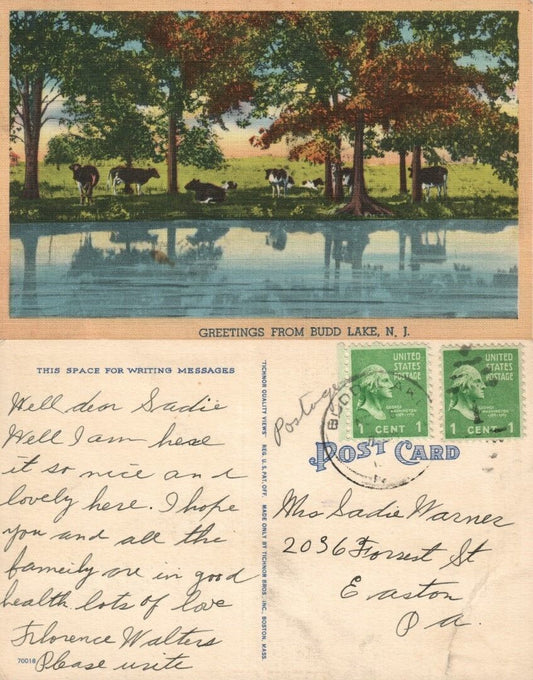 GREETINGS FROM BUDD LAKE, N. J.
THIS SPACE FOR WRITING MESSAGES
Well dear Sadie
Well I am here
it so nice and
lovely here. I hope
you and all the
fameily are in good
health lots of love
Frlorence Walters
Please write
70018
TICHNOR QUALITY VIEWS REG. U. S. PAT. OFF. MADE ONLY BY TICHNOR BROS. INC., BOSTON, MASS.
Postage
UNITED
STATES
POSTAGE
GEORGE
WASHINGTON
1 CENT 1
UNITED
STATES
POSTAGE
1 CENT 1
POST CARD
Mrs Sadie Warner
2036 Forrest St
Easton
Pa.